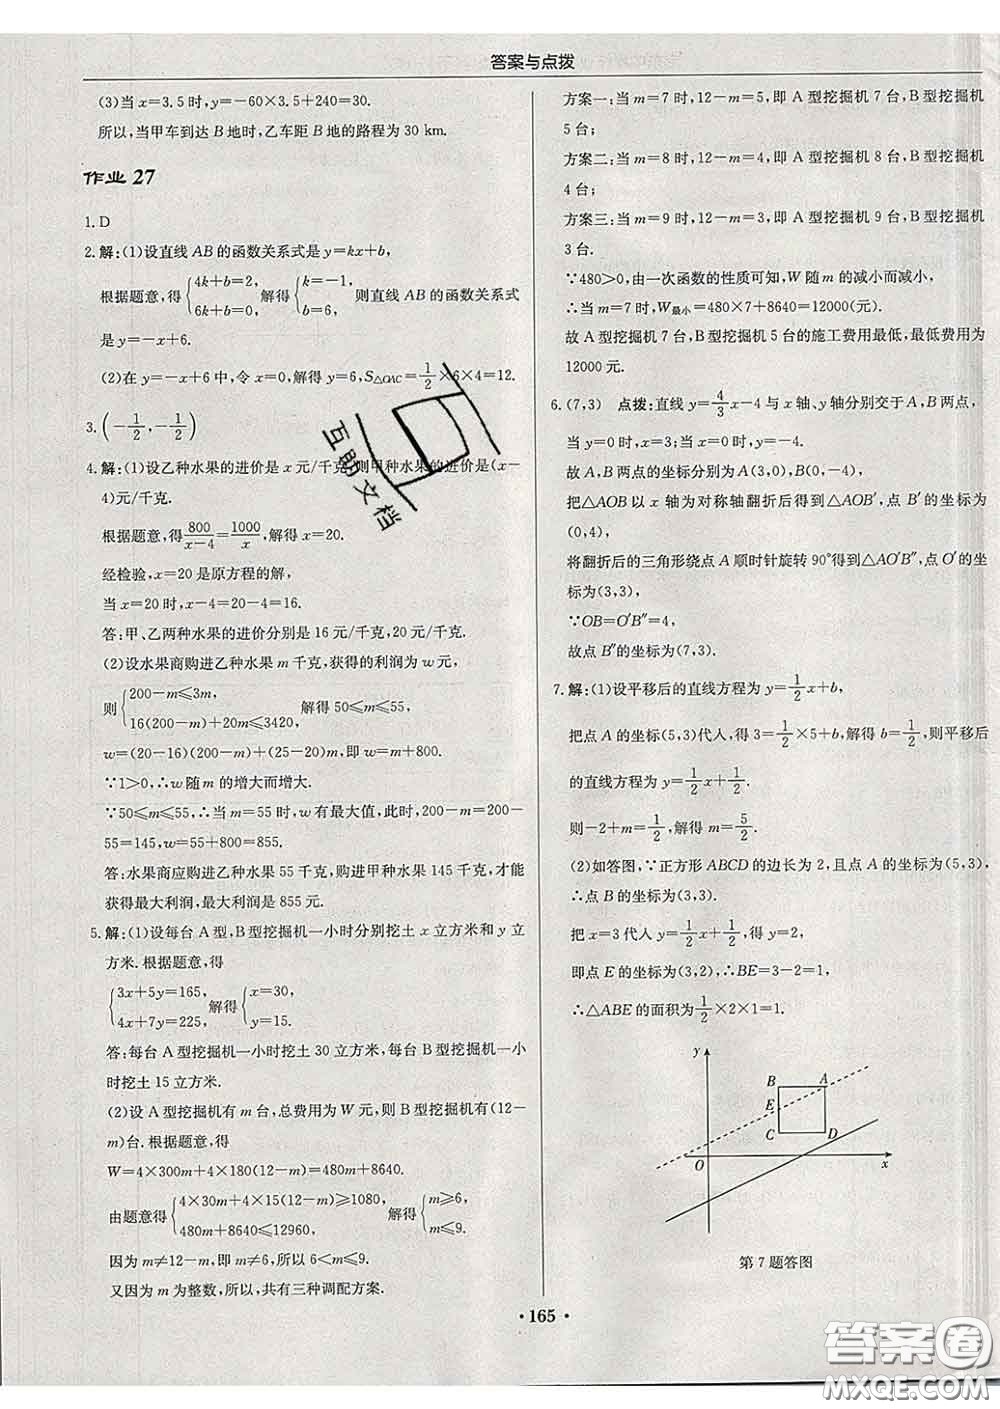 答案与点拨
(3)当 x=3.5 时,y=-60×3.5+240=30.
所以,当甲车到达 B 地时,乙车距 B 地的路程为 30 km.
作业 27
1. D
2. 解:(1)设直线 AB 的函数关系式是 y=kx+b,
根据题意,得{4k+b=2, 6k+b=0, 解得{k=-1, b=6, 则直线 AB 的函数关系式
是 y=-x+6.
(2)在 y=-x+6 中,令 x=0,解得 y=6,S△OAC=1/2×6×4=12.
3. (-1/2,-1/2)
4. 解:(1)设乙种水果的进价是 x 元/千克,则甲种水果的进价是(x-
4)元/千克.
根据题意,得800/(x-4)=1000/x,解得 x=20.
经检验,x=20 是原方程的解,
当 x=20 时,x-4=20-4=16.
答:甲、乙两种水果的进价分别是 16 元/千克,20 元/千克.
(2)设水果商购进乙种水果 m 千克,获得的利润为 w 元,
则{200-m≤3m, 16(200-m)+20m≤3420, 解得 50≤m≤55,
w=(20-16)(200-m)+(25-20)m,即 w=m+800.
∵1>0,∴w 随 m 的增大而增大.
∵50≤m≤55,∴当 m=55 时,w 有最大值,此时,200-m=200-
55=145,w=55+800=855.
答:水果商应购进乙种水果 55 千克,购进甲种水果 145 千克,才能
获得最大利润,最大利润是 855 元.
5. 解:(1)设每台 A 型,B 型挖掘机一小时分别挖土 x 立方米和 y 立
方米.根据题意,得
{3x+5y=165, 4x+7y=225, 解得{x=30, y=15.
答:每台 A 型挖掘机一小时挖土 30 立方米,每台 B 型挖掘机一小
时挖土 15 立方米.
(2)设 A 型挖掘机有 m 台,总费用为 W 元,则 B 型挖掘机有(12-
m)台.根据题意,得
W=4×300m+4×180(12-m)=480m+8640.
由题意得{4×30m+4×15(12-m)≥1080, 480m+8640≤12960, 解得{m≥6, m≤9.
因为 m≠12-m,即 m≠6,所以 6<m≤9.
又因为 m 为整数,所以,共有三种调配方案.
方案一:当 m=7 时,12-m=5,即 A 型挖掘机 7 台,B 型挖掘机
5 台;
方案二:当 m=8 时,12-m=4,即 A 型挖掘机 8 台,B 型挖掘机
4 台;
方案三:当 m=9 时,12-m=3,即 A 型挖掘机 9 台,B 型挖掘机
3 台.
∵480>0,由一次函数的性质可知,W 随 m 的减小而减小,
∴当 m=7 时,W最小=480×7+8640=12000(元).
故 A 型挖掘机 7 台,B 型挖掘机 5 台的施工费用最低,最低费用为
12000 元.
6. (7,3) 点拨:直线 y=4/3x-4 与 x 轴、y 轴分别交于 A,B 两点,
当 y=0 时,x=3;当 x=0 时,y=-4.
故 A,B 两点的坐标分别为 A(3,0),B(0,-4),
把△AOB 以 x 轴为对称轴翻折后得到△AOB′,点 B′的坐标为
(0,4),
将翻折后的三角形绕点 A 顺时针旋转 90°得到△AO′B″,点 O′的坐
标为(3,3),
∵OB=O′B″=4,
故点 B″的坐标为(7,3).
7. 解:(1)设平移后的直线方程为 y=1/2x+b,
把点 A 的坐标(5,3)代人,得 3=1/2×5+b,解得 b=1/2,则平移后
的直线方程为 y=1/2x+1/2.
则-2+m=1/2,解得 m=5/2.
(2)如答图,∵正方形 ABCD 的边长为 2,且点 A 的坐标为(5,3),
∴点 B 的坐标为(3,3).
把 x=3代人 y=1/2x+1/2,得 y=2,
即点 E 的坐标为(3,2),∴BE=3-2=1,
∴△ABE 的面积为1/2×2×1=1.
y
B A
E
C D
O x
第 7 题答图
· 165 ·
互助文档
答案圈
MXQE.COM